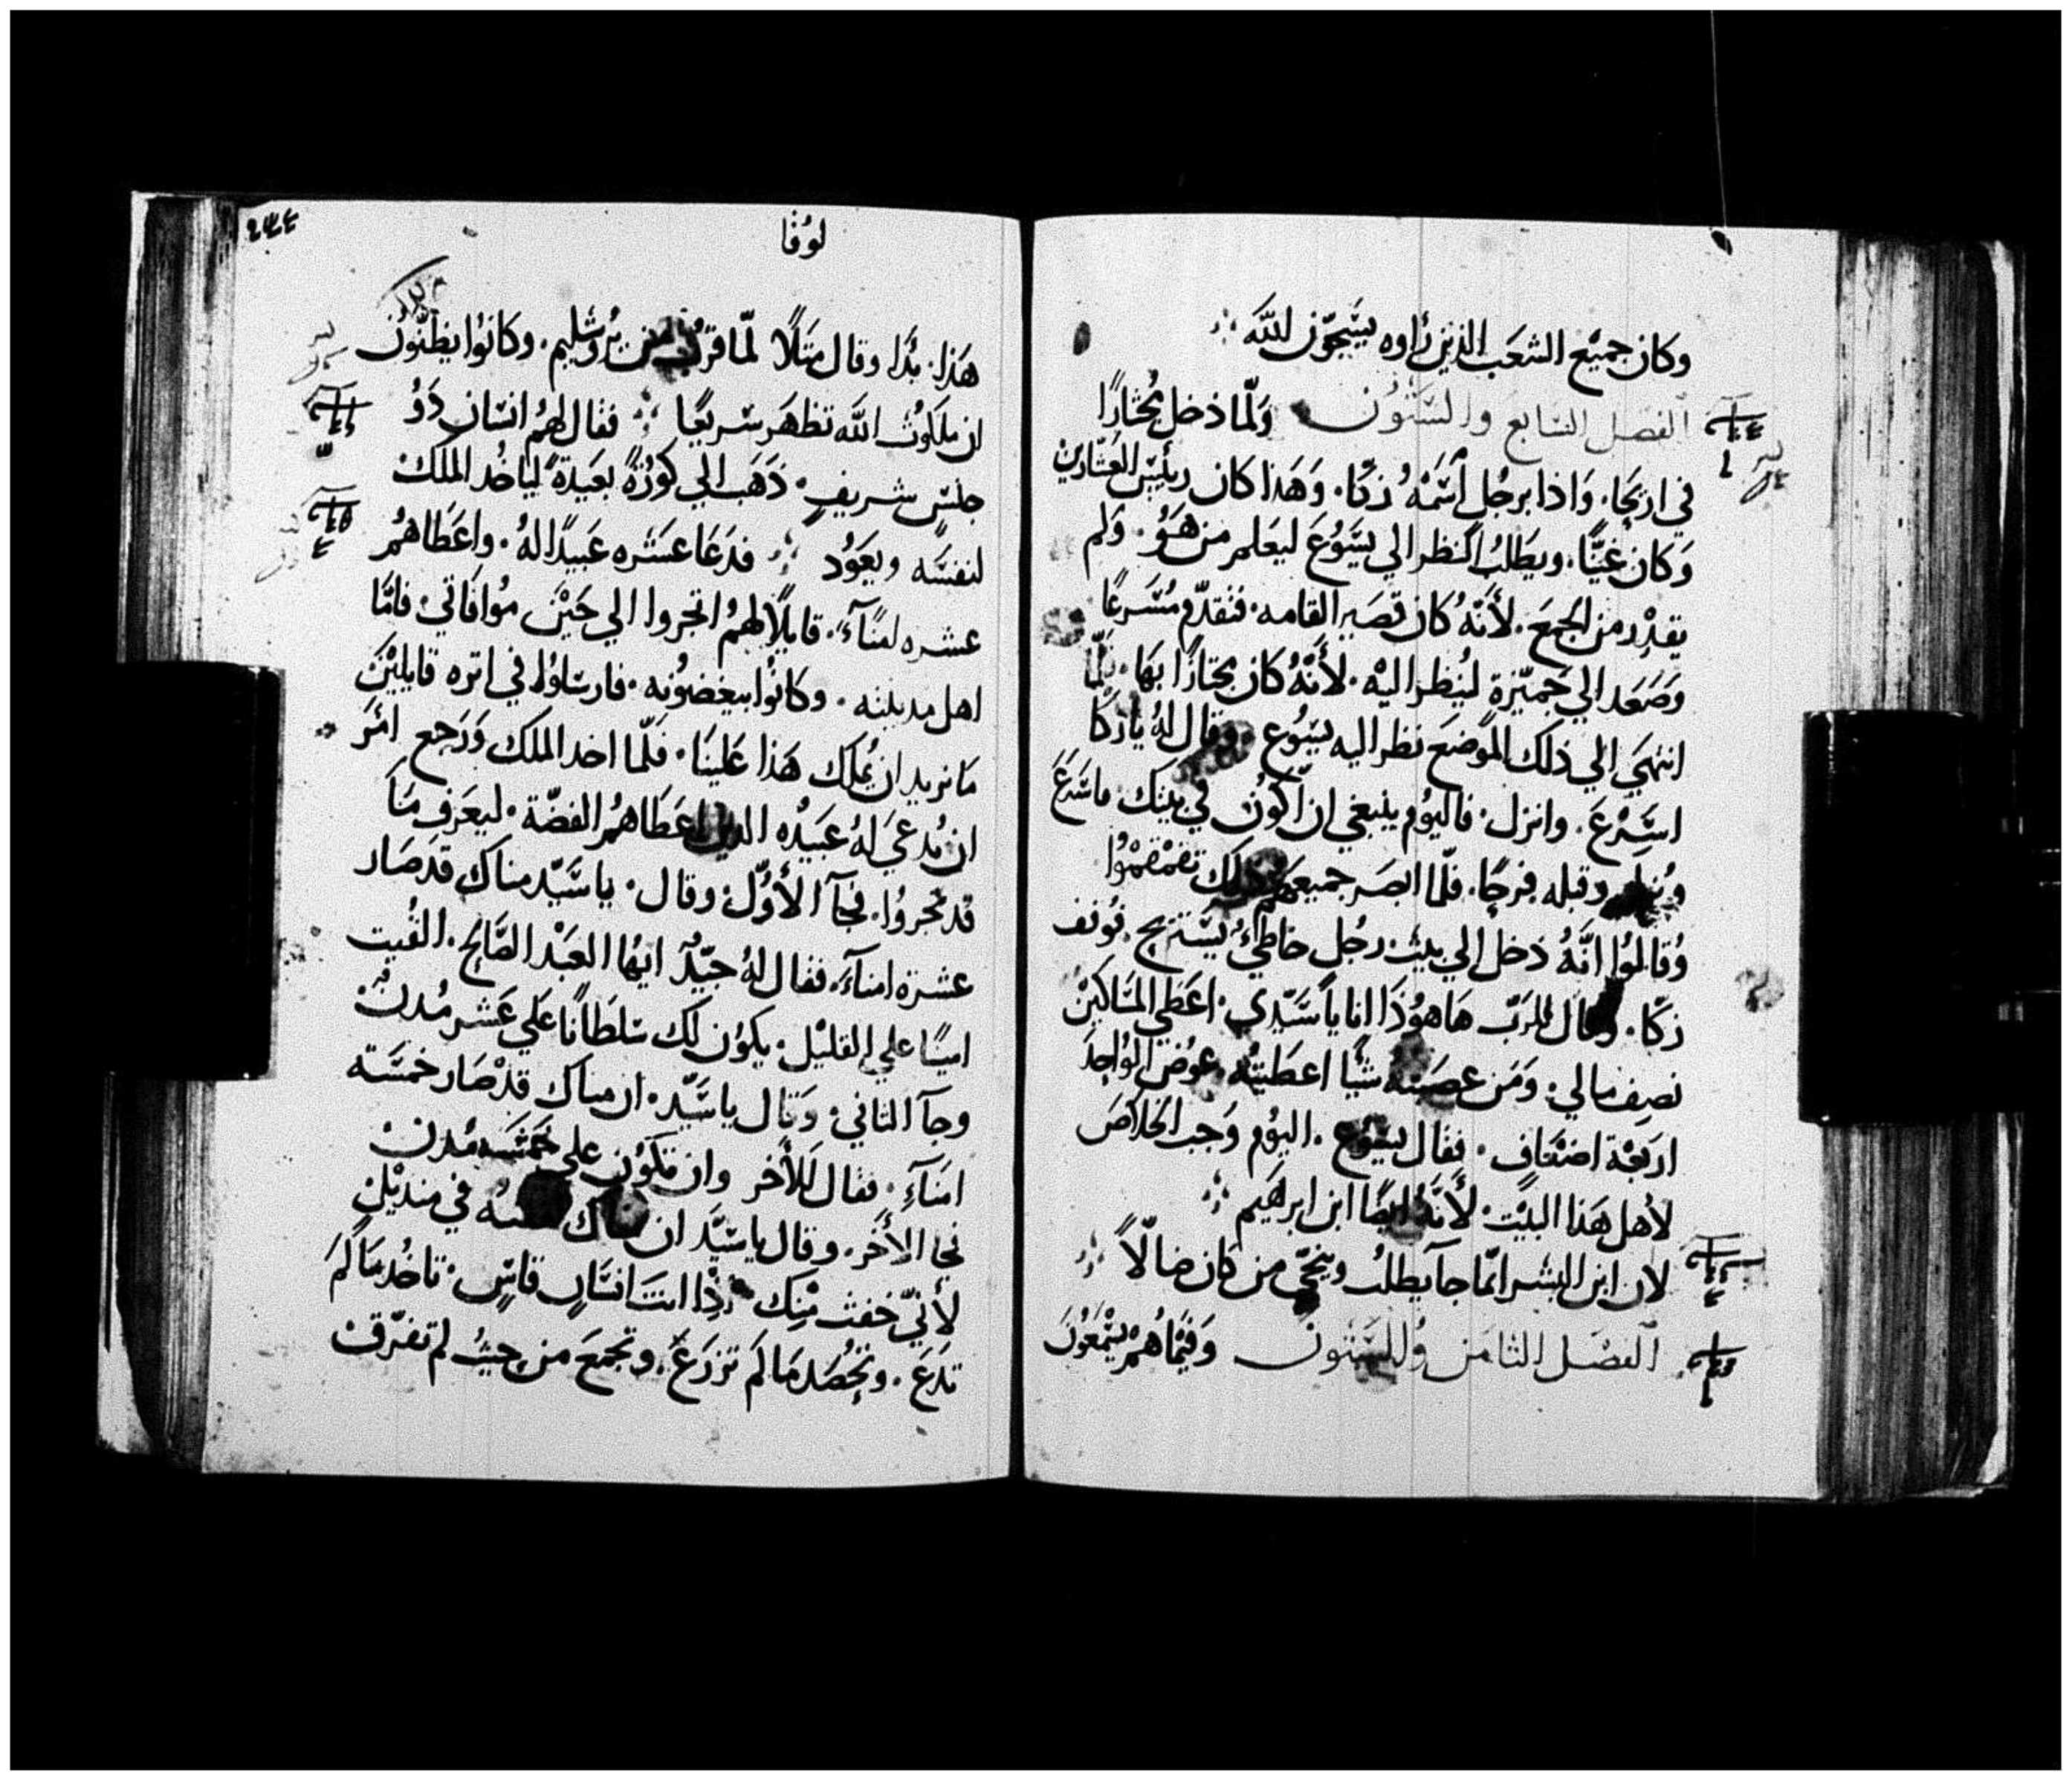 وكان جميع الشعب الذين رأوه يسبحون لله
الفصل السابع والستون ولما دخل مجتازًا
في اريحا. واذا برجل اسمه زكا. وهذا كان رييس العشارين
وكان غنيًا. ويطلب النظر الي يسوع ليعلم من هو. ولم
يقدر من الجمع. لأنه كان قصير القامه. فتقدم مسرعًا
وصعد الي جميزة لينظر اليه. لأنه كان مجتازًا بها. فلما
انتهي الي ذلك الموضع نظر اليه يسوع وقال له يا زكا
اسرع. وانزل. فاليوم ينبغي ان اكون في بيتك فاسرع
وقبله فرحًا. فلما ابصر جميعهم ذلك تقمقموا
وقالوا انه دخل الي بيت رجل خاطي يستريح. فوقف
زكا. وقال للرب ها هوذا انا يا سيدي. اعطي المساكين
نصف مالي. ومن غصبته شيًا اعطيته عوض الواحد
اربعة اضعاف. فقال يسوع. اليوم وجب الخلاص
لأهل هذا البيت. لأنه ايضًا ابن ابرهيم
لان ابن البشر انما جآ يطلب وينجي من كان ضالًا
الفصل الثامن والستون وفيما هم يسمعون
لوقا
٢٣٤
هذا. بدا وقال مثلًا لما قرب من يروشليم. وكانوا يظنون
ان ملكوت الله تظهر سريعًا فقال لهم انسان ذو
جنس شريف. ذهب الي كورة بعيدة لياخد الملك
لنفسه ويعود فدعا عشره عبيدًا له. واعطاهم
عشره امنآء. قايلًا لهم اتجروا الي حين موافاتي. فاما
اهل مدينته. وكانوا يبغضونه. فارسلوا في اتره قايلين
ما نريد ان يملك هذا علينا. فلما اخد الملك ورجع امر
ان يدعي له عبيده الدين اعطاهم الفضة. ليعرف ما
قد تجروا. فجآ الأول. وقال. يا سيد مناك قد صار
عشرة امنآء. فقال له جيد ايها العبد الصالح. الفيت
امينًا علي القليل. يكون لك سلطانًا علي عشر مدن
وجآ التاني. وقال يا سيد. ان مناك قد صار خمسة
امنآء. فقال للأخر وان تكون علي خمسه مدن
فجا الأخر. وقال يا سيد ان مناك في منديل
لأني خفت منك اذا انت انسان قاس. تاخد ما لم
تدع. وتحصد ما لم تزرع. وتجمع من حيث لم تفرق